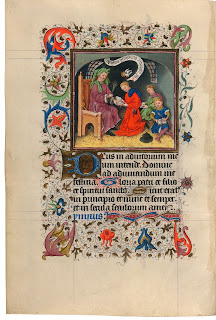 Deus in adiutorium me
um intende. Domine
ad adiuuandum me
festina. Gloria patri et filio
et spiritui sancto. Sicut erat
in principio et nunc et semper
et in secula seculorum amen
ymnus